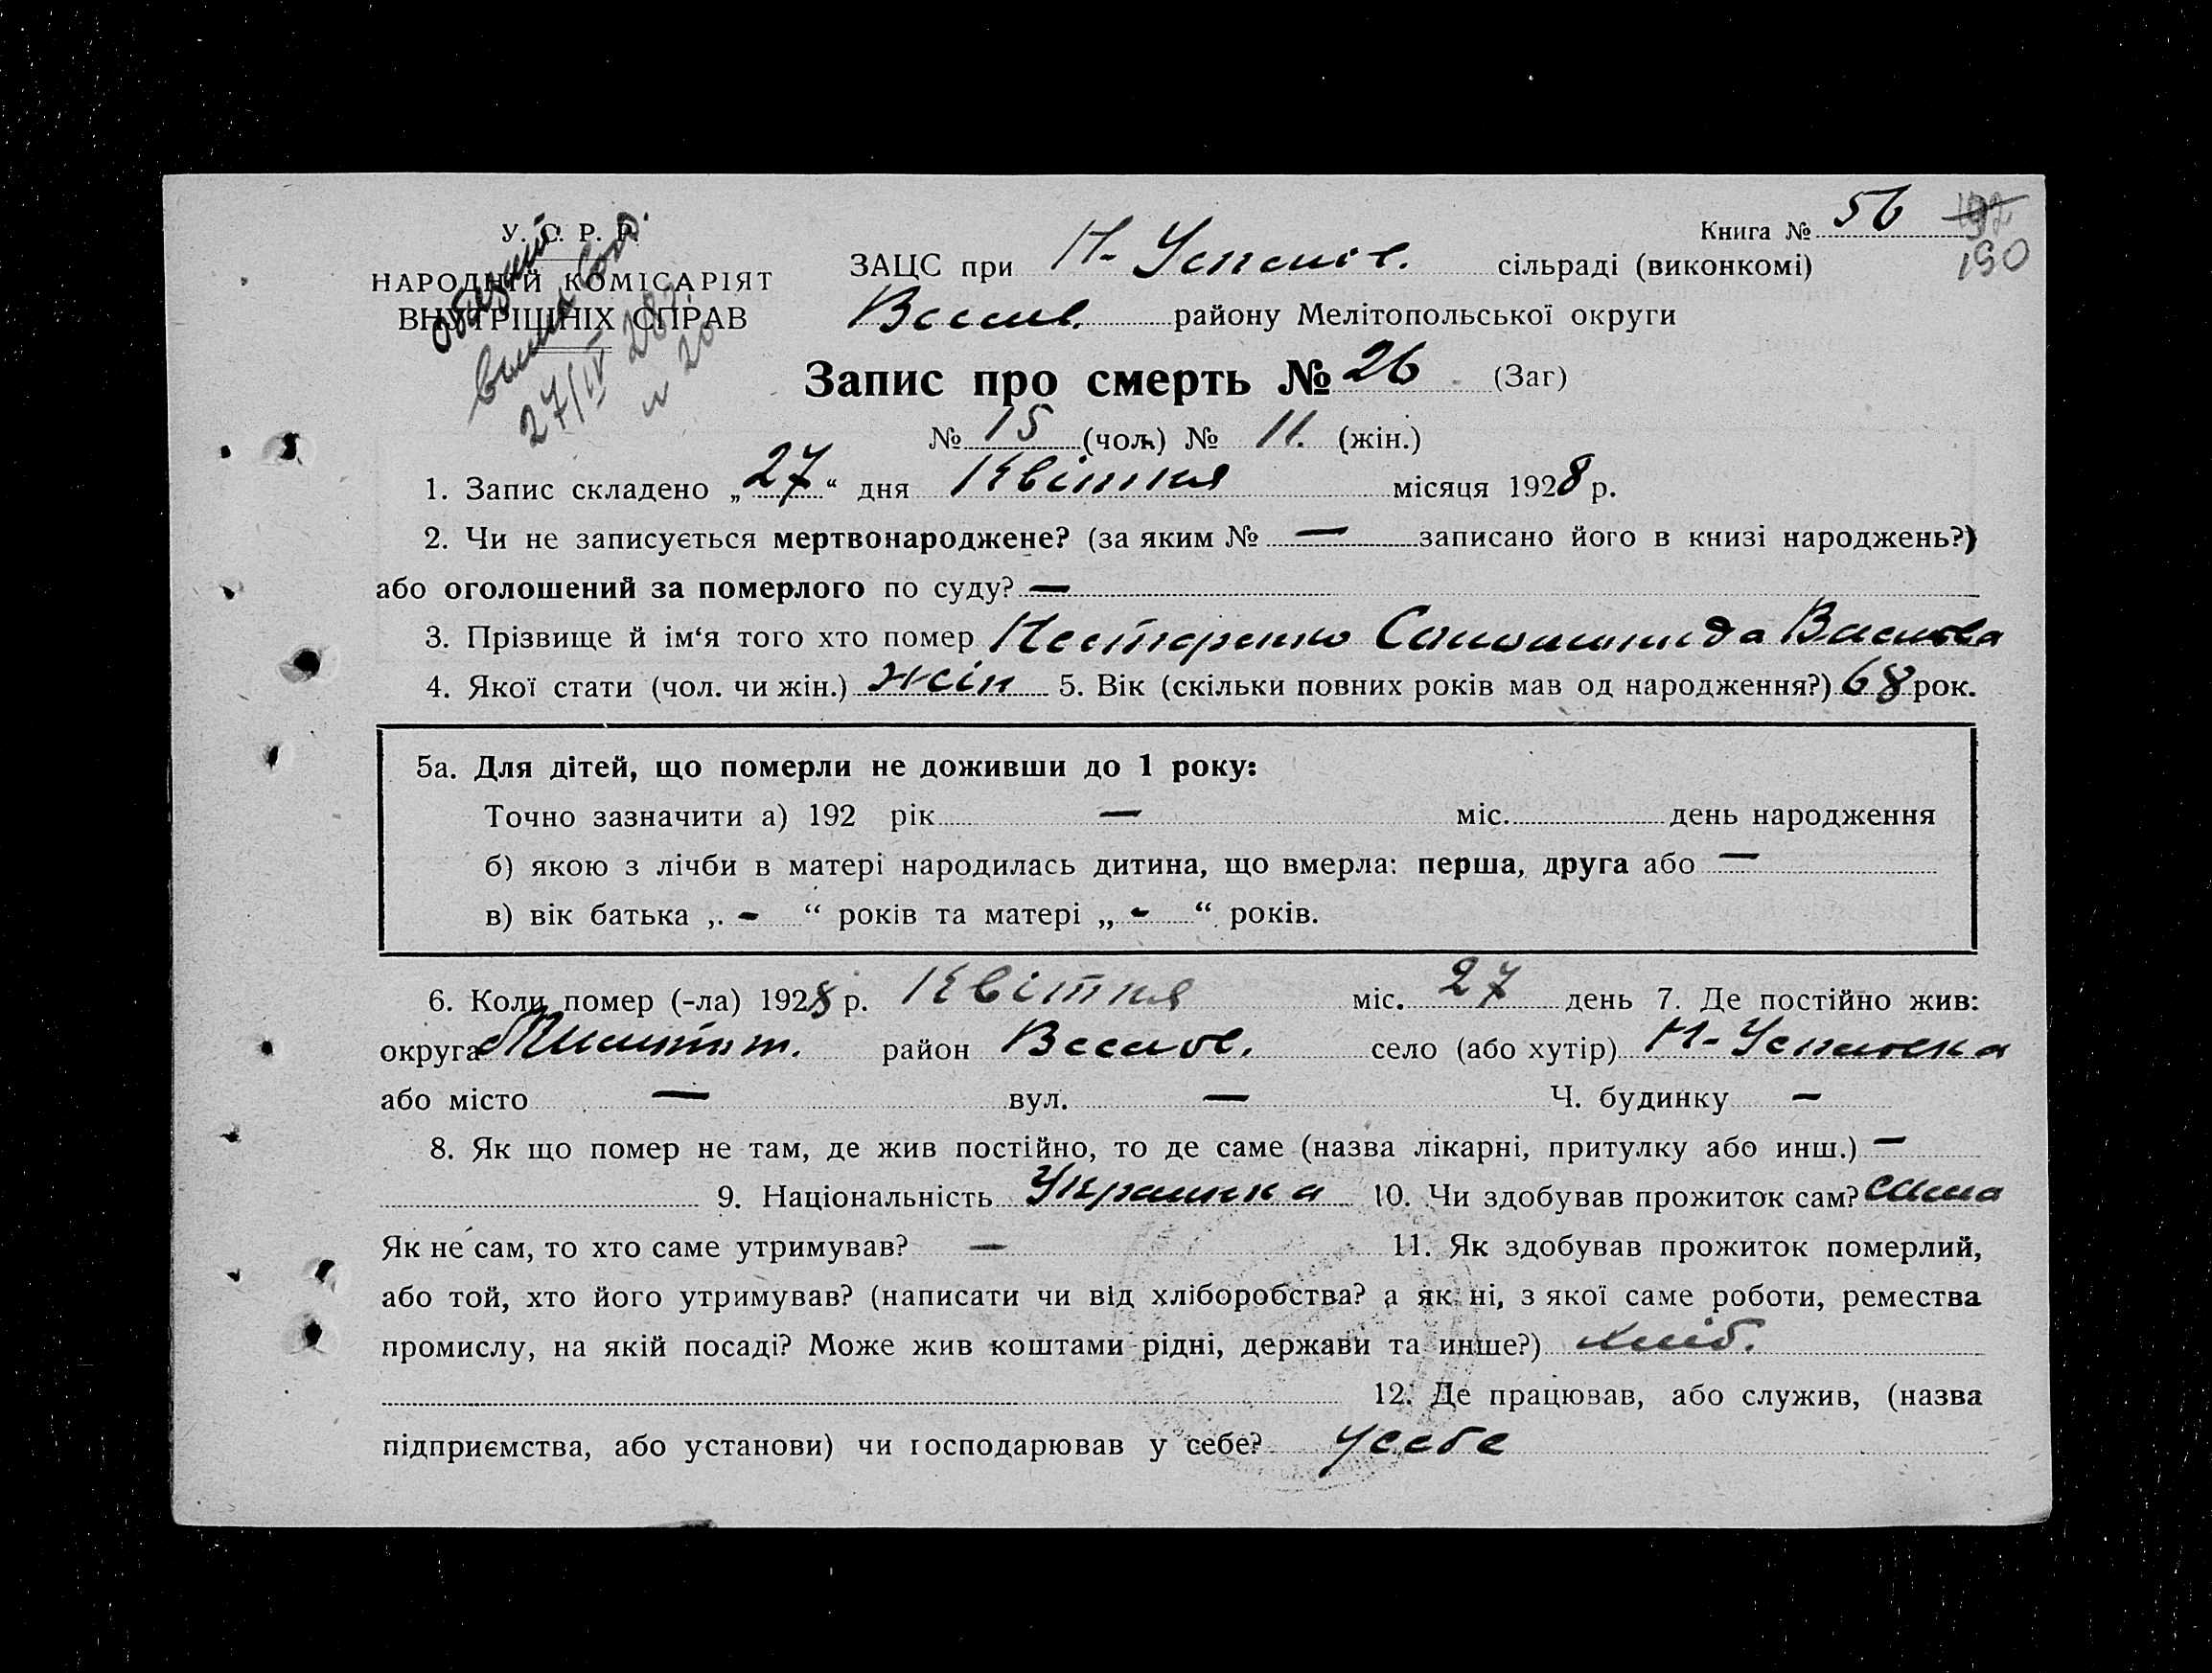 У. С. Р. Р.
НАРОДНІЙ КОМІСАРІЯТ
ВНУТРІШНІХ СПРАВ
27/IV 28
№ 20
Книга № 56
190
ЗАЦС при Н-Успенів. сільраді (виконкомі)
Весел. району Мелітопольської округи
Запис про смерть № 26 (Заг)
№ 15 (чол.) № 11. (жін.)
1. Запис складено „27“ дня Квітня місяця 1928 р.
2. Чи не записується мертвонароджене? (за яким № — записано його в книзі народжень?)
або оголошений за померлого по суду? —
3. Прізвище й ім‘я того хто помер Нестеренко Василева
4. Якої стати (чол. чи жін.) жін 5. Вік (скільки повних років мав од народження?) 68 рок.
5а. Для дітей, що померли не доживши до 1 року:
Точно зазначити а) 192 рік — міс. день народження
б) якою з лічби в матері народилась дитина, що вмерла: перша, друга або —
в) вік батька „ - “ років та матері „ - “ років.
6. Коли помер (-ла) 1928 р. Квітня міс. 27 день 7. Де постійно жив:
округа Меліт. район Веселов. село (або хутір) Н-Успеновка
або місто — вул. — Ч. будинку —
8. Як що помер не там, де жив постійно, то де саме (назва лікарні, притулку або инш.) —
9. Національність Украинка 10. Чи здобував прожиток сам? сама
Як не сам, то хто саме утримував? — 11. Як здобував прожиток померлий,
або той, хто його утримував? (написати чи від хліборобства? а як ні, з якої саме роботи, ремества
промислу, на якій посаді? Може жив коштами рідні, держави та инше?) хліб.
12. Де працював, або служив, (назва
підприємства, або установи) чи господарював у себе? усебе